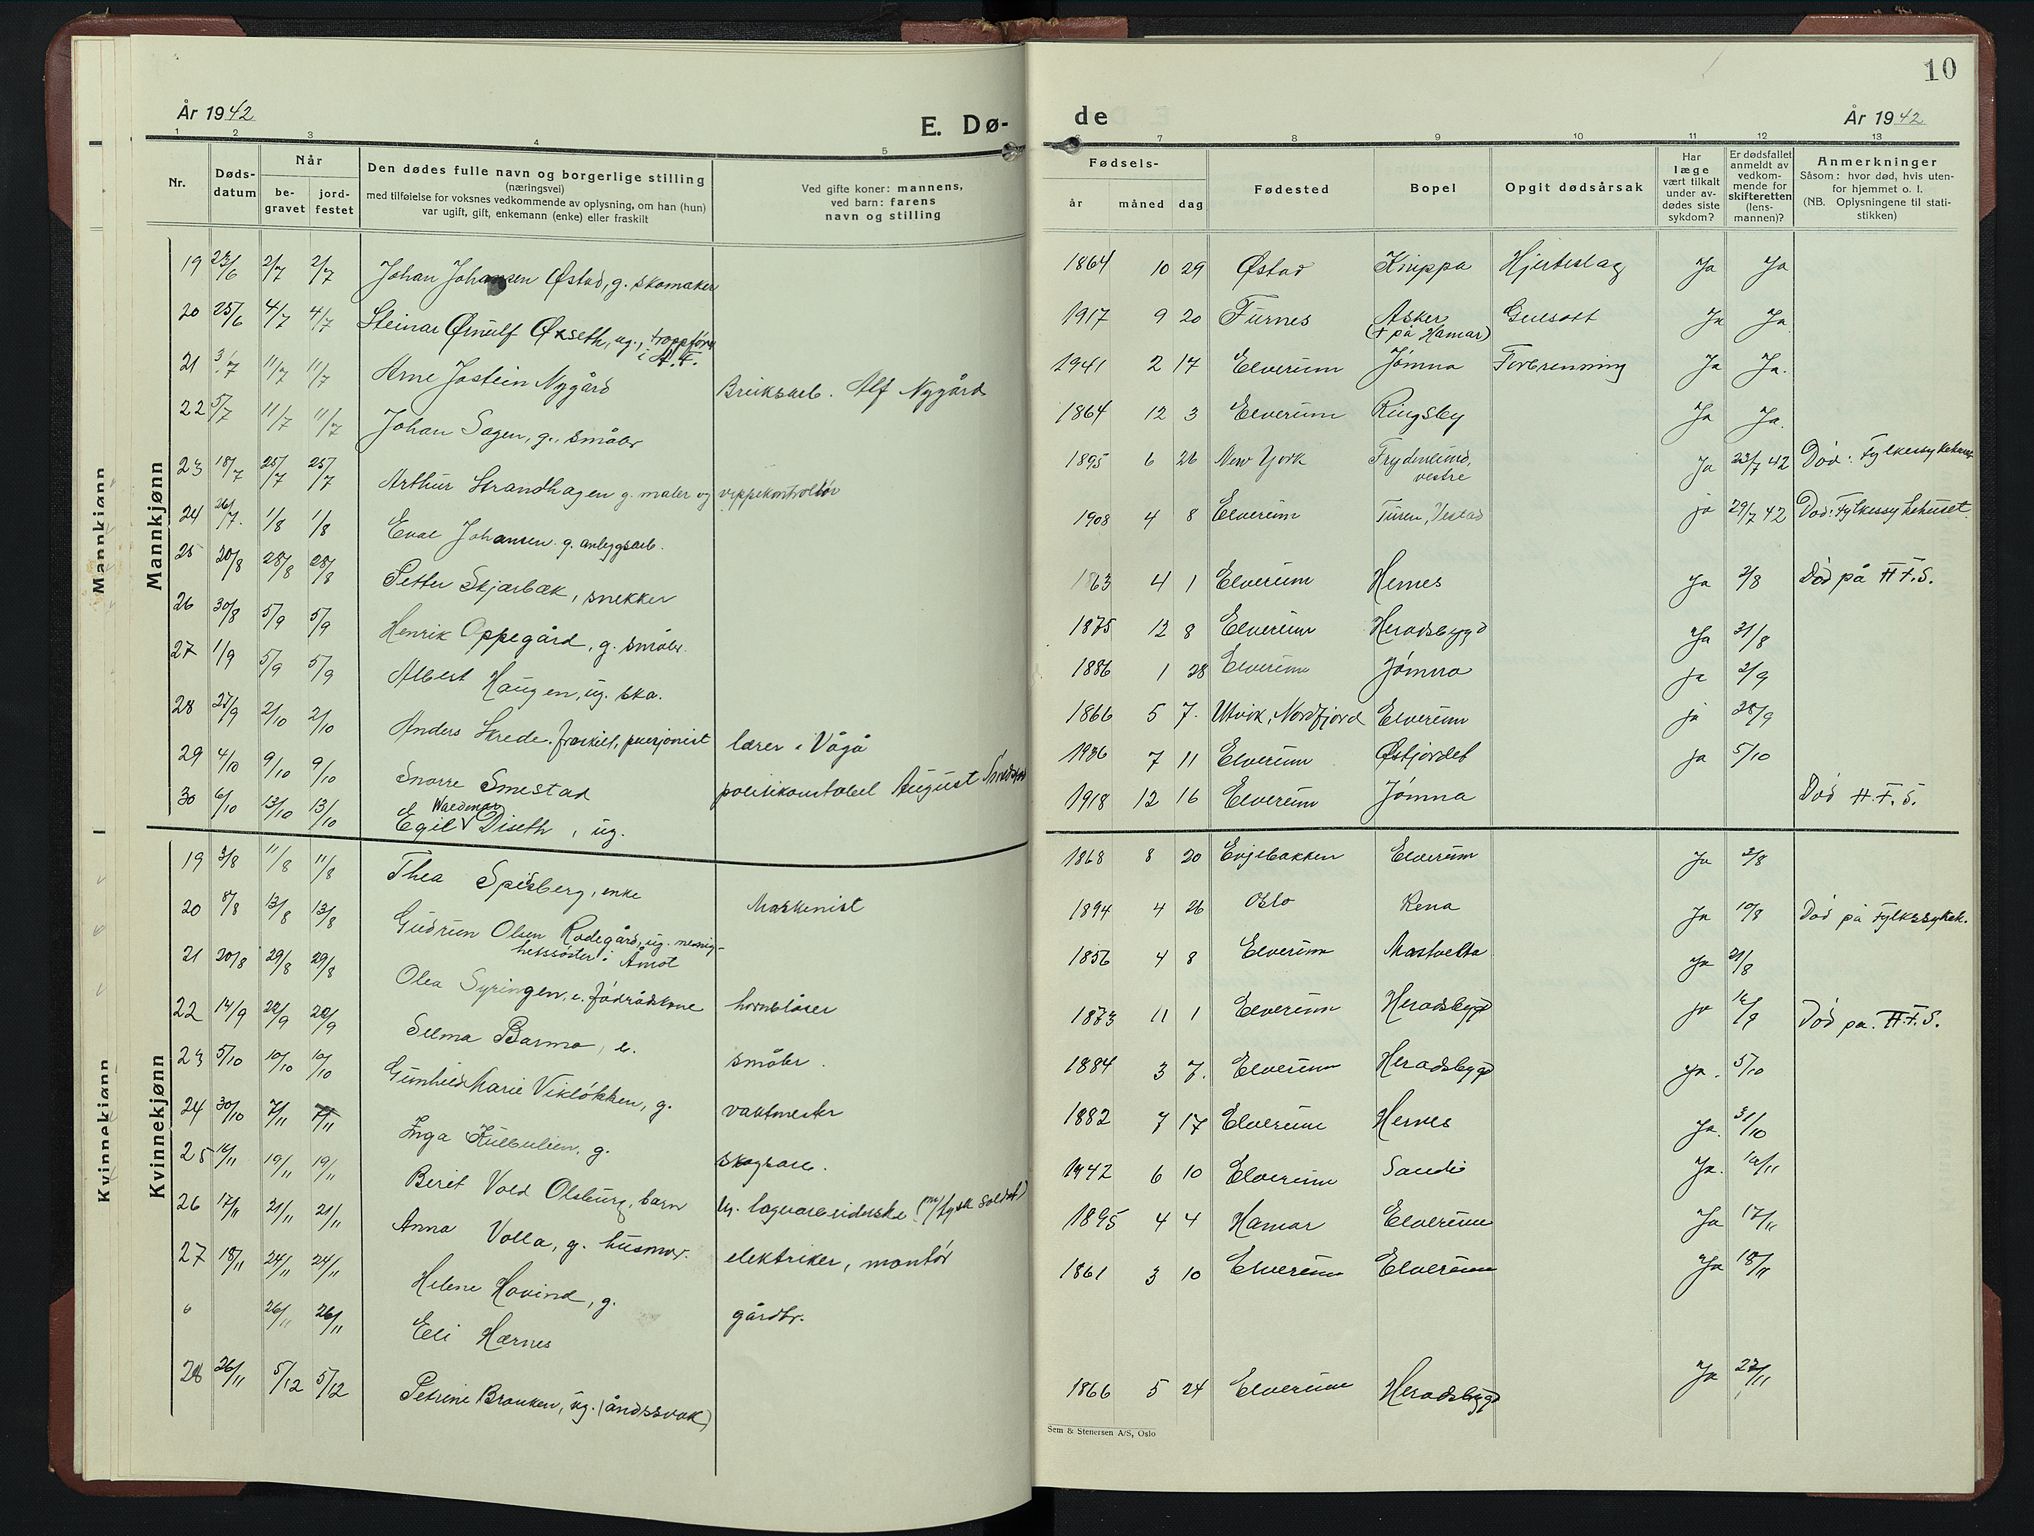 10
År 1942
E. Dø-
de
År 1942
1 2 3 4 5 6 7 8 9 10 11 12 13
Nr.
Døds-
datum
Når
be-
gravet
jord-
festet
Den dødes fulle navn og borgerlige stilling
(næringsvei)
med tilføielse for voksnes vedkommende av oplysning, om han (hun)
var ugift, gift, enkemann (enke) eller fraskilt
Ved gifte koner: mannens,
ved barn: farens
navn og stilling
Fødsels-
år måned dag
Fødested
Bopel
Opgit dødsårsak
Har
læge
vært tilkalt
under av-
dødes siste
sykdom?
Er dødsfallet
anmeldt av
vedkom-
mende for
skifteretten
(lens-
mannen)?
Anmerkninger
Såsom: hvor død, hvis uten-
for hjemmet o. l.
(NB. Oplysningene til stati-
stikken)
Mannkjønn
Mannkjønn
19 23/6 2/7 2/7 Johan Johansen Østad, g. skomaker 1864 10 29 Østad Knippa Hjerteslag Ja Ja
20 25/6 4/7 4/7 Steinar Ørnulf Økseth, ug., troppfører i A.T. 1917 9 20 Furnes Asker (+ på Hamar) Gulsott Ja Ja.
21 3/7 11/7 11/7 Arne Jostein Nygård Bruksarb. Alf Nygård 1941 2 17 Elverum Jømna Forbrenning Ja Ja.
22 5/7 11/7 11/7 Johan Sagen, g., småbr 1864 12 3 Elverum Ringsby Ja Ja.
23 18/7 25/7 25/7 Arthur Strandhagen g. maler og vippekontrollør 1895 6 26 New York Frydenlund, vestre Ja 23/7 42 Død: Fylkessykehus
24 26/7. 1/8 1/8 Eval Johansen g. anleggsarb. 1908 4 8 Elverum Turen, Vestad ja 29/7 42 Død: Fylkessykehuset.
25 20/8 28/8 28/8 Petter Skjærbæk, snekker 1863 4 1 Elverum Hernes Ja 2/8 Død på H.F.S.
26 30/8 5/9 5/9 Henrik Oppegård, g. småbr. 1875 12 8 Elverum Heradsbygd Ja 31/8
27 1/9 5/9 5/9 Albert Haugen, ug. ska. 1886 1 28 Elverum Jømna ja 2/9
28 27/9 2/10 2/10 Anders Skrede. fraskilt, pensjonist lærer i Vågå 1866 5 7. Utvik, Nordfjord Elverum ja 28/9
29 4/10 9/10 9/10 Snorre Smestad politikonstabel August Smestad 1936 7 11 Elverum Østjordet ja 5/10
30 6/10 13/10 13/10 Egil Waldemar Diseth, ug. 1918 12 16 Elverum Jømna Død H.F.S.
Kvinnekjønn
Kvinnekjønn
19 3/8 11/8 11/8 Thea Spilsberg, enke Maskinist 1868 8 20 Evjebakken Elverum Ja 3/8
20 8/8 13/8 13/8 Gudrun Olsen Rodegård, ug. menig-
hetssøster i Åmot 1894 4 26 Oslo Rena Ja 10/8 Død på Fylkessykeh.
21 20/8 29/8 29/8 Olea Syringen, e. födrådskone hornblåser 1856 4 8 Elverum Mastvelta Ja 21/8
22 14/9 20/9 20/9 Selma Barmo, e. småbr. 1873 11 1 Elverum Heradsbygd ja 16/9 Død på. H.F.S.
23 5/10 10/10 10/10 Gunhild Marie Vikløkken, g. vaktmester 1884 3 7. Elverum Heradsbygd Ja. 5/10
24 30/10 7/11 7/11 Inga Kulbulien, g. skogsarb. 1882 7 17 Elverum Hernes Ja. 31/10
25 19/11 19/11 Berit Vold Olsburg, barn ug. lagvarbeiderske (m/tysk soldat) 1942 6 10 Elverum Sandb Ja.
26 17/11 21/11 21/11 Anna Volla, g. husmor. elektriker, montör 1895 4 4 Hamar Elverum Ja 17/11
27 18/11 24/11 24/11 Helene Hovind, g. gårdbr. 1861 3 10 Elverum Elverum Ja 18/11
26/11 26/11 Eli Hærnes
28 26/11 5/12 5/12 Petrine Brauken, ug. (åndssvak) 1866 5 24 Elverum Heradsbygd Ja 27/11
Sem & Stenersen A/S, Oslo